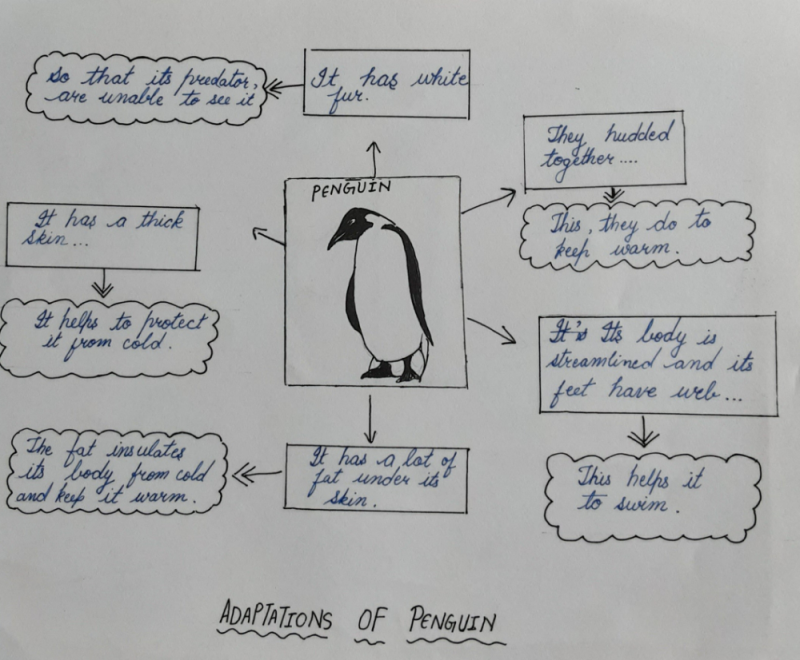 So that its predator,
are unable to see it
It has white
fur.
They hudded
together....
This, they do to
keep warm.
PENGUIN
It has a thick
skin...
It helps to protect
it from cold.
It's Its body is
streamlined and its
feet have web...
This helps it
to swim.
The fat insulates
its body from cold
and keep it warm.
It has a lot of
fat under its
skin.
ADAPTATIONS OF PENGUIN